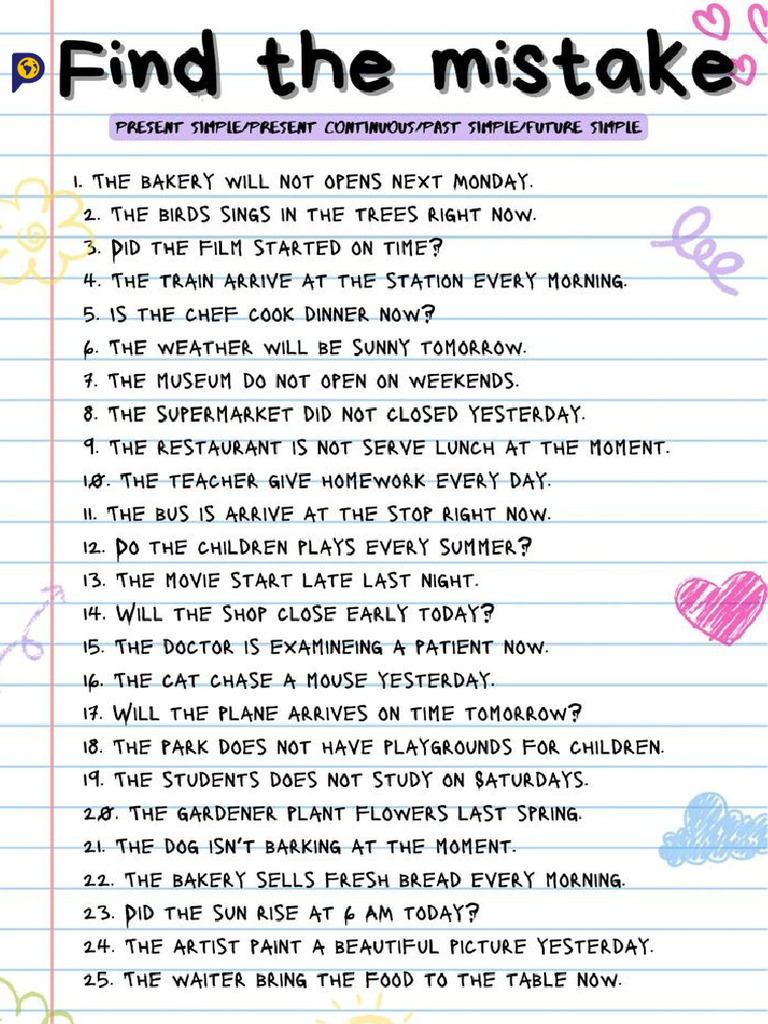 Find the mistake
PRESENT SIMPLE/PRESENT CONTINUOUS/PAST SIMPLE/FUTURE SIMPLE
1. THE BAKERY WILL NOT OPENS NEXT MONDAY.
2. THE BIRDS SINGS IN THE TREES RIGHT NOW.
3. DID THE FILM STARTED ON TIME?
4. THE TRAIN ARRIVE AT THE STATION EVERY MORNING.
5. IS THE CHEF COOK DINNER NOW?
6. THE WEATHER WILL BE SUNNY TOMORROW.
7. THE MUSEUM DO NOT OPEN ON WEEKENDS.
8. THE SUPERMARKET DID NOT CLOSED YESTERDAY.
9. THE RESTAURANT IS NOT SERVE LUNCH AT THE MOMENT.
10. THE TEACHER GIVE HOMEWORK EVERY DAY.
11. THE BUS IS ARRIVE AT THE STOP RIGHT NOW.
12. DO THE CHILDREN PLAYS EVERY SUMMER?
13. THE MOVIE START LATE LAST NIGHT.
14. WILL THE SHOP CLOSE EARLY TODAY?
15. THE DOCTOR IS EXAMINEING A PATIENT NOW.
16. THE CAT CHASE A MOUSE YESTERDAY.
17. WILL THE PLANE ARRIVES ON TIME TOMORROW?
18. THE PARK DOES NOT HAVE PLAYGROUNDS FOR CHILDREN.
19. THE STUDENTS DOES NOT STUDY ON SATURDAYS.
20. THE GARDENER PLANT FLOWERS LAST SPRING.
21. THE DOG ISN'T BARKING AT THE MOMENT.
22. THE BAKERY SELLS FRESH BREAD EVERY MORNING.
23. DID THE SUN RISE AT 6 AM TODAY?
24. THE ARTIST PAINT A BEAUTIFUL PICTURE YESTERDAY.
25. THE WAITER BRING THE FOOD TO THE TABLE NOW.